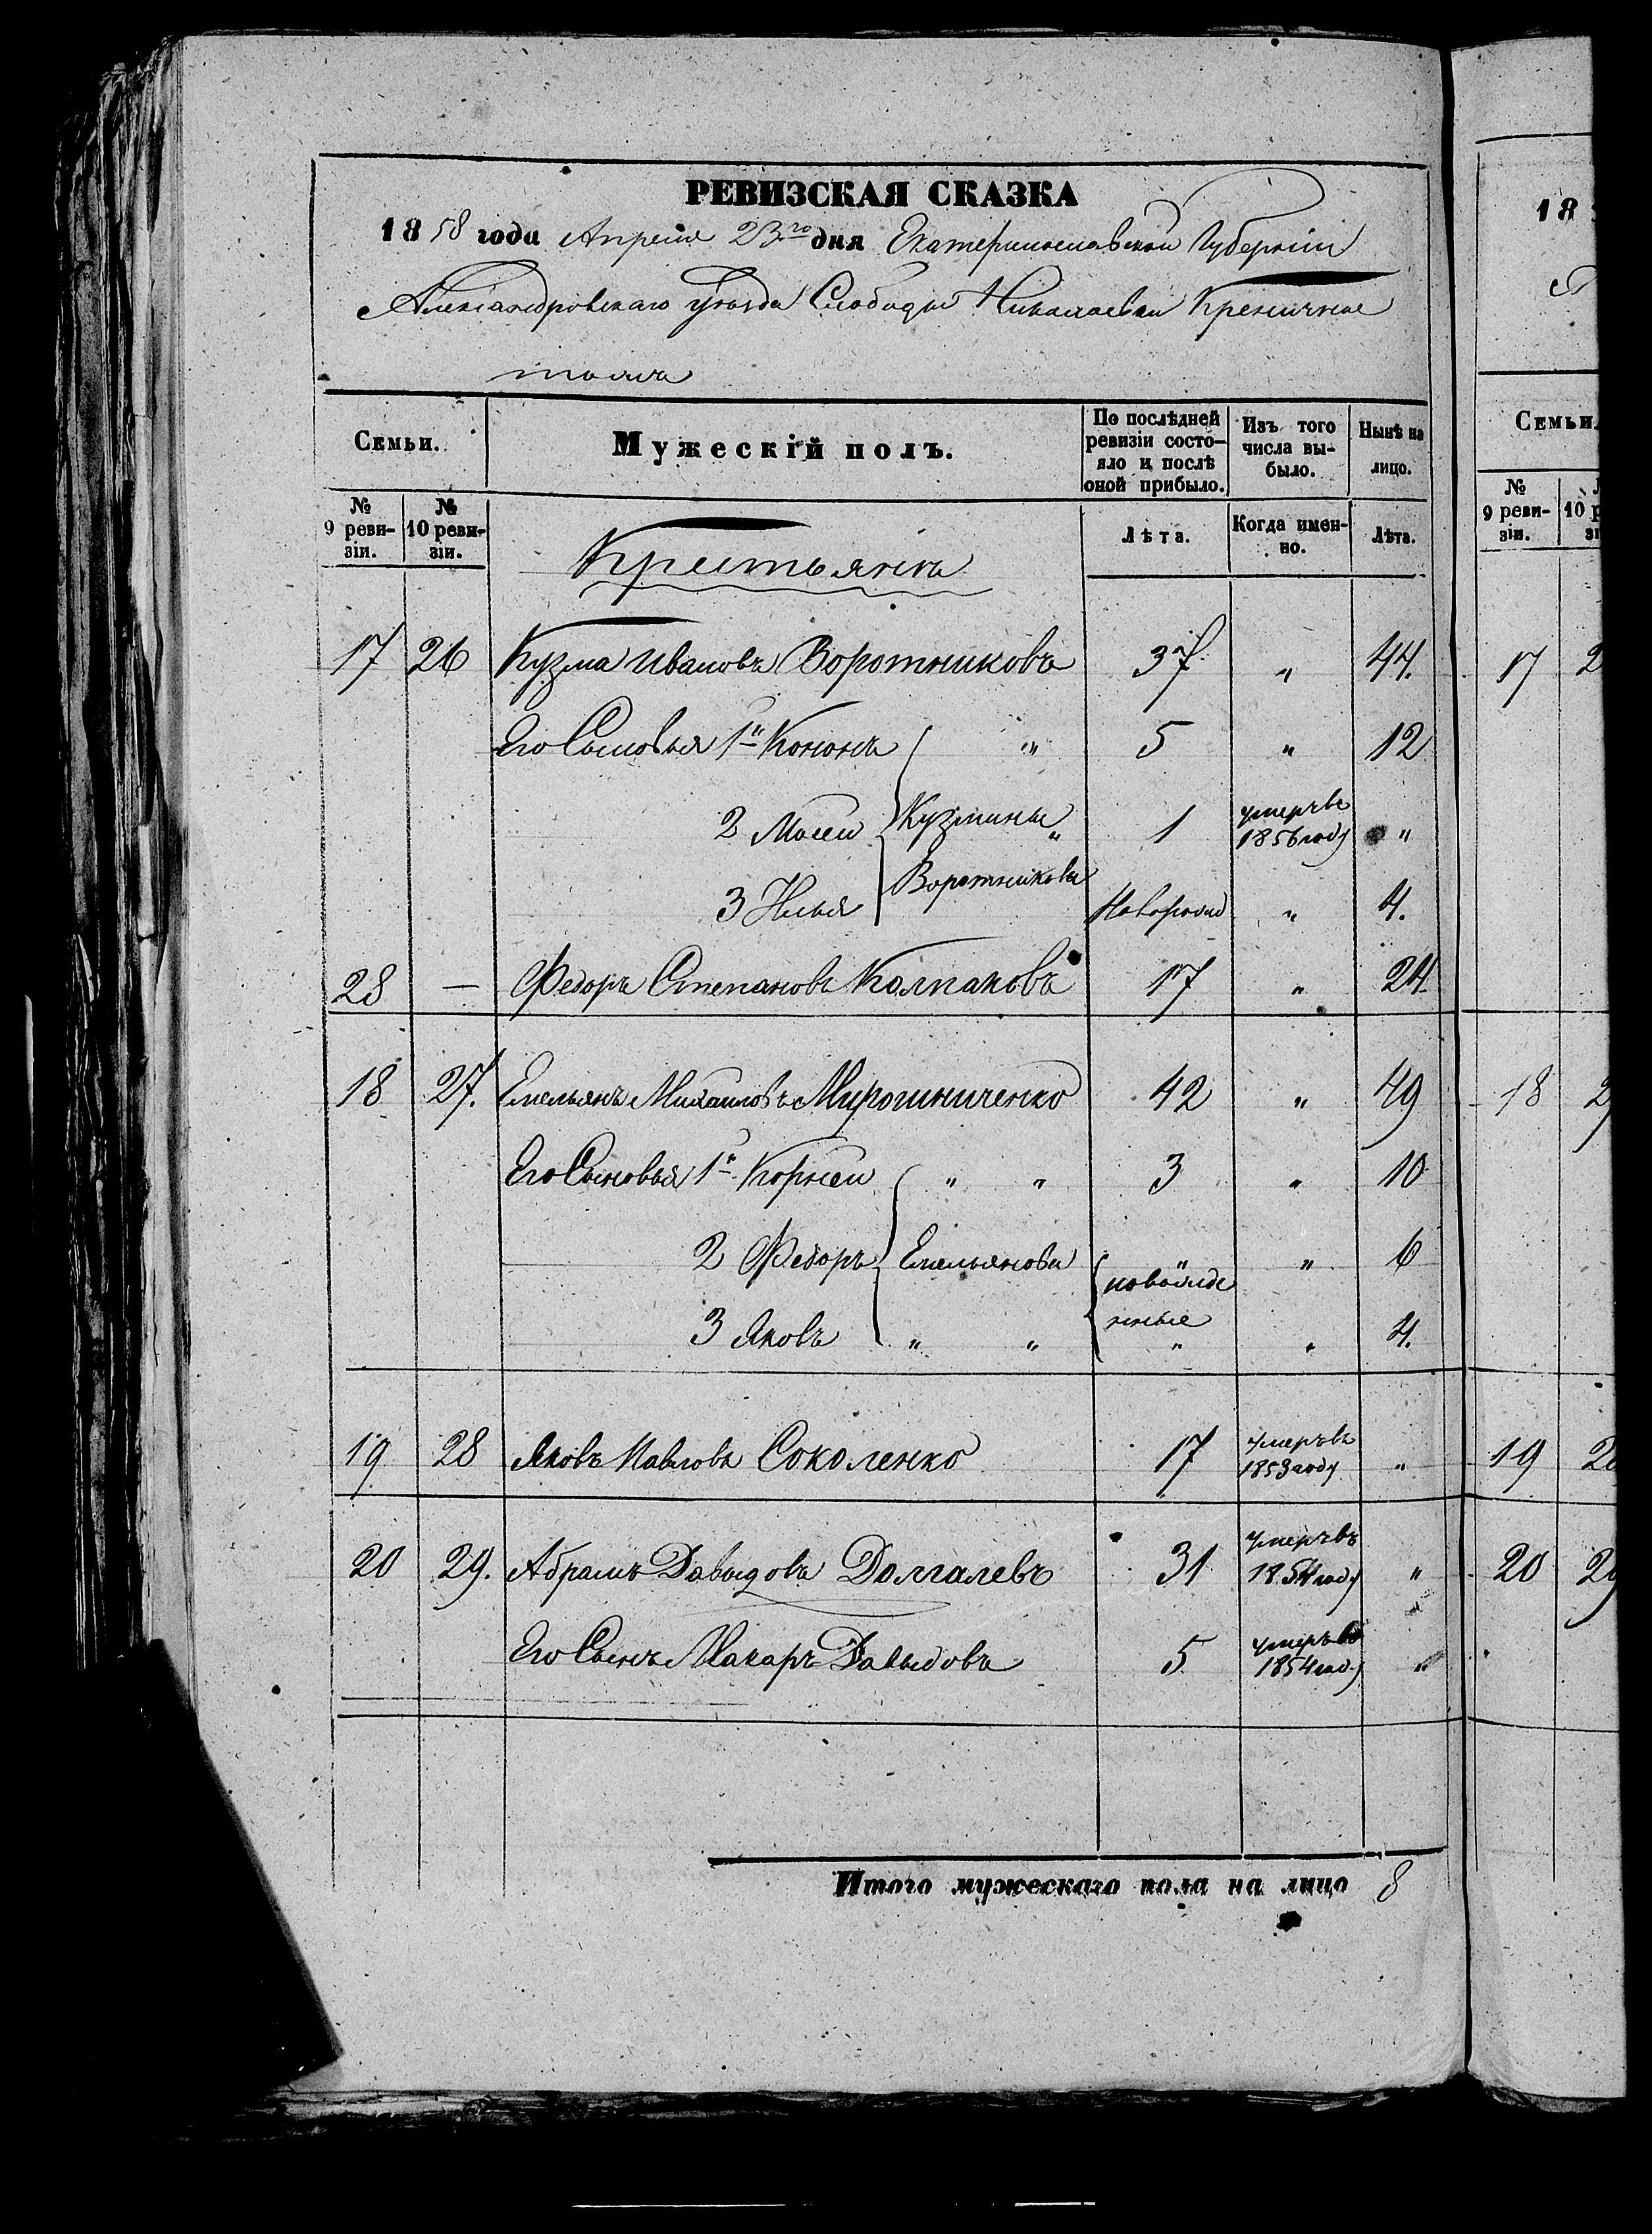 РЕВИЗСКАЯ СКАЗКА
1858 года Апреля 23го дня Екатеринославской Губернiи
Александровскаго уѣзда Слободы Николаевки Креничная
тожъ
Семьи. Мужескій полъ. По послѣдней ревизіи состояло и послѣ оной прибыло. Изъ того числа выбыло. Нынѣ на лицо.
№ 9 ревизіи. № 10 ревизіи. Лѣта. Когда именно. Лѣта.
Крестьянъ
17 26 Кузма Ивановъ Воротниковъ 37 " 44.
Его Сыновья 1й Кононъ " 5 " 12
2 Мосей Кузмины " 1 умеръ въ 1856 году "
3 Илья Воротниковы Новорожд " 4.
28 — Федоръ Степановъ Колпаковъ 17 " 24
18 27. Емельянъ Михаиловъ Мирошниченко 42 " 49
Его Сыновья 1й Корней " " 3 " 10
2 Федоръ Емельяновы " " 6
новорожденные
3 Яковъ " " " " 4.
19 28 Яковъ Павловъ Соколенко 17 умеръ въ 1853 году "
20 29. Абрамъ Давыдовъ Долгалевъ 31 умеръ въ 1854 году "
Его Сынъ Макаръ Давыдовъ 5 умеръ въ 1854 году "
Итого мужескаго пола на лицо 8
18
Семьи
№ 9 ревизіи. 10
17 2
18 2
19 2
20 29